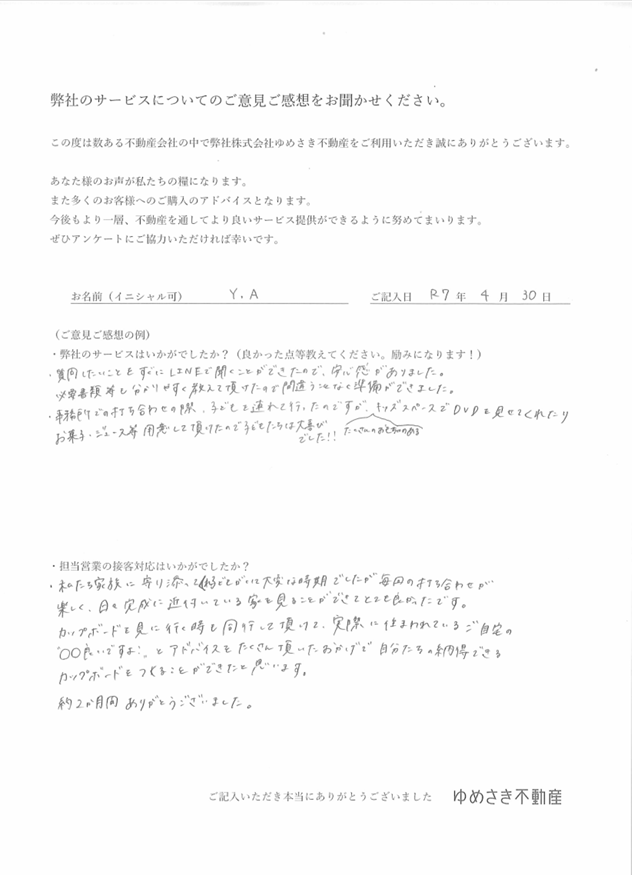 弊社のサービスについてのご意見ご感想をお聞かせください。
この度は数ある不動産会社の中で弊社株式会社ゆめさき不動産をご利用いただき誠にありがとうございます。
あなた様のお声が私たちの糧になります。
また多くのお客様へのご購入のアドバイスとなります。
今後もより一層、不動産を通してより良いサービス提供ができるように努めてまいります。
ぜひアンケートにご協力いただければ幸いです。
お名前（イニシャル可） Y.A ご記入日 R7年 4月 30日
（ご意見ご感想の例）
・弊社のサービスはいかがでしたか？（良かった点等教えてください。励みになります！）
・質問したいことをすぐにLINEで聞くことができたので、安心感がありました。
必要書類等も分かりやすく教えて頂けたので間違うことなく準備ができました。
・事務所での打ち合わせの際、子どもを連れて行ったのですが、キッズスペースでDVDを見せてくれたり
お菓子・ジュース等用意して頂けたので子どもたちは大喜び
でした!! たくさんのおもちゃのある
・担当営業の接客対応はいかがでしたか？
・私たち家族に寄り添って 子どもがいて大変な時期でしたが毎回の打ち合わせが
楽しく、日々完成に近付いている家を見ることができてとても良かったです。
カップボードを見に行く時も同行して頂けて、実際に住まわれているご自宅の
"〇〇良いですよ!"とアドバイスをたくさん頂いたおかげで自分たちの納得できる
カップボードをつくることができたと思います。
約2か月間ありがとうございました。
ご記入いただき本当にありがとうございました ゆめさき不動産